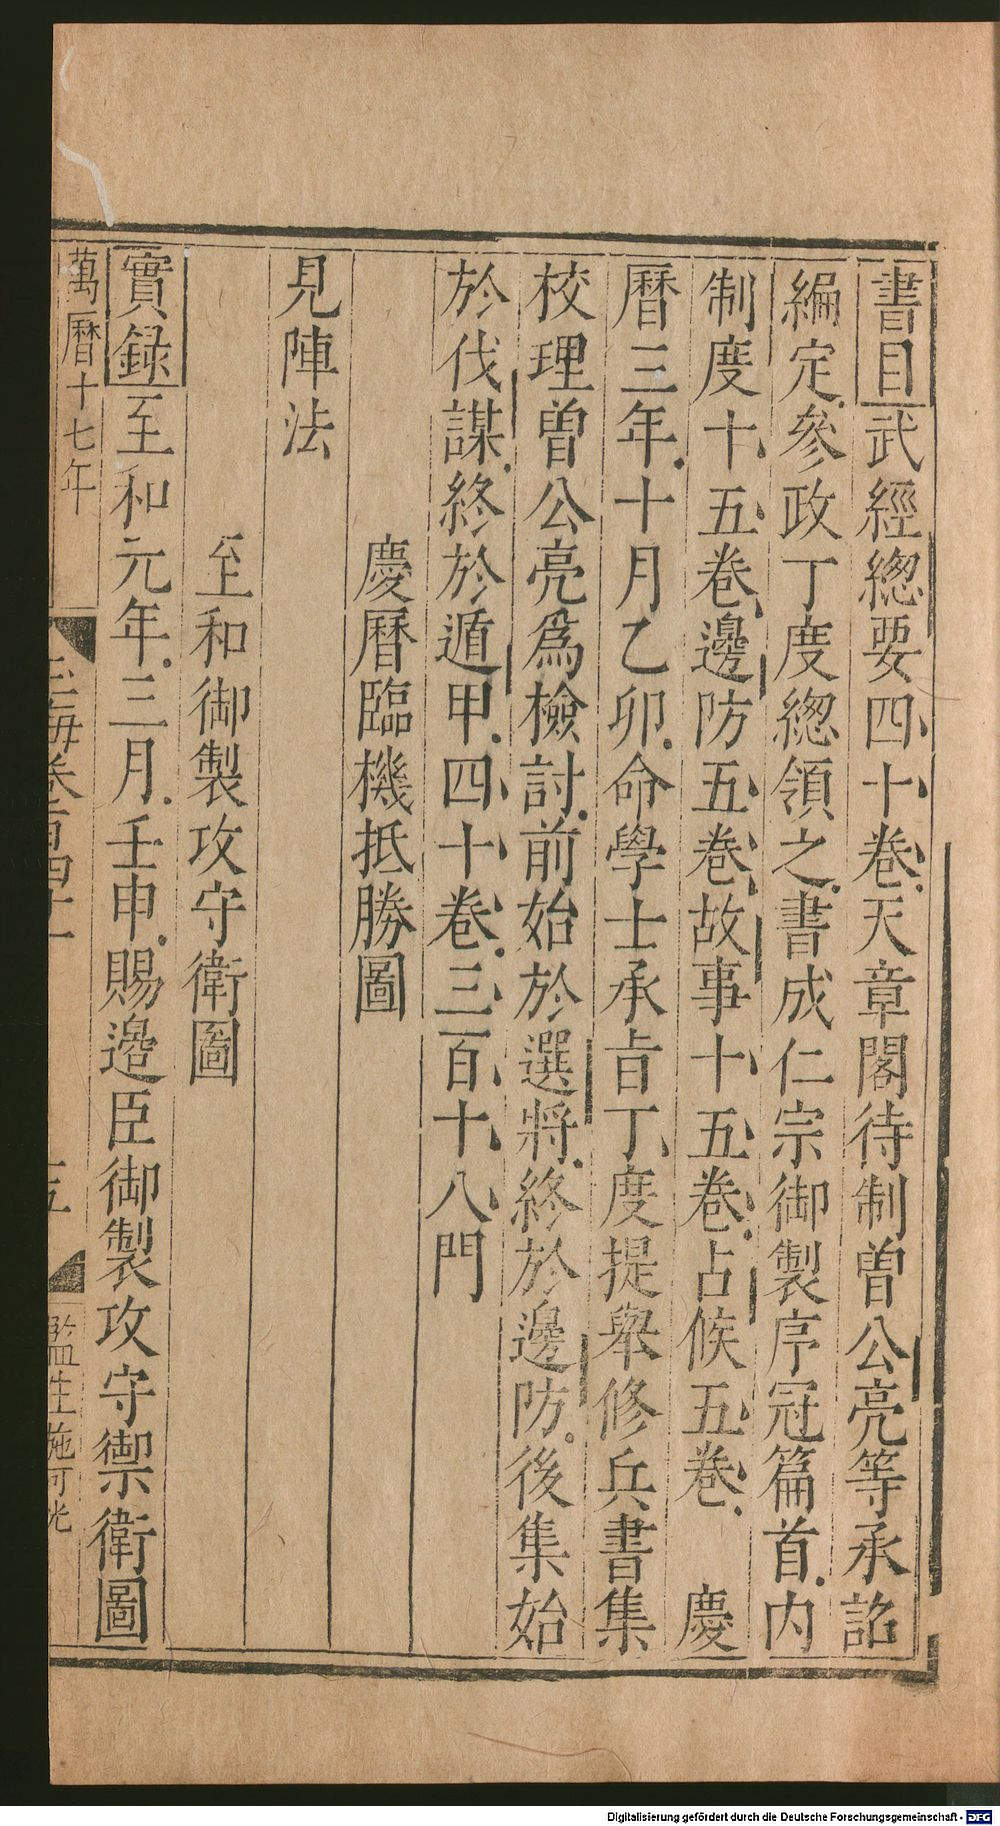 書目武經緫要四十卷天章閣待制曽公亮等承詔
編定參政丁度緫領之書成仁宗御製序冠篇首内
制度十五卷邊防五卷故事十五卷占候五卷　慶
曆三年十月乙卯命學士承旨丁度提舉修兵書集
校理曽公亮爲檢討前始於選將終於邊防後集始
於伐謀終於遁甲四十卷三百十八門
慶曆臨機抵勝圖
見陣法
至和御製攻守衛圖
實録至和元年三月壬申賜邉臣御製攻守禦衛圖
萬曆十七年
玉海卷百四十一
十五
監生施可光
Digitalisierung gefördert durch die Deutsche Forschungsgemeinschaft - DFG